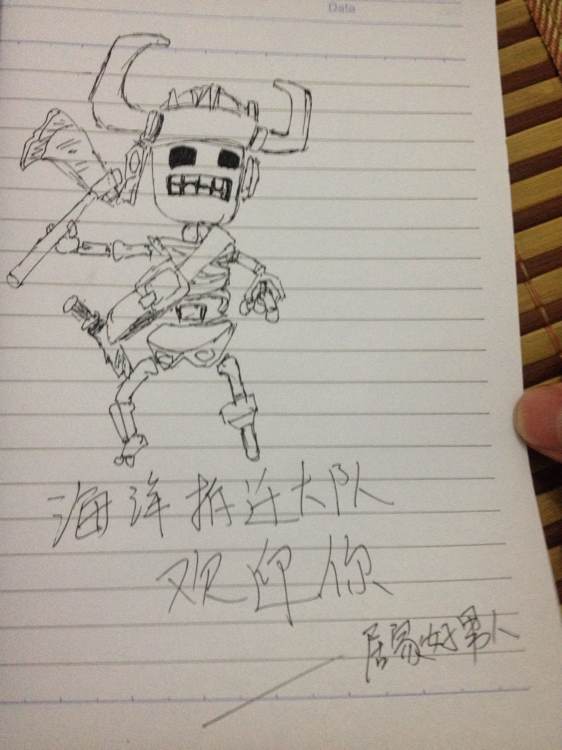 Date
海洋拆迁大队
欢迎你
居家好男人